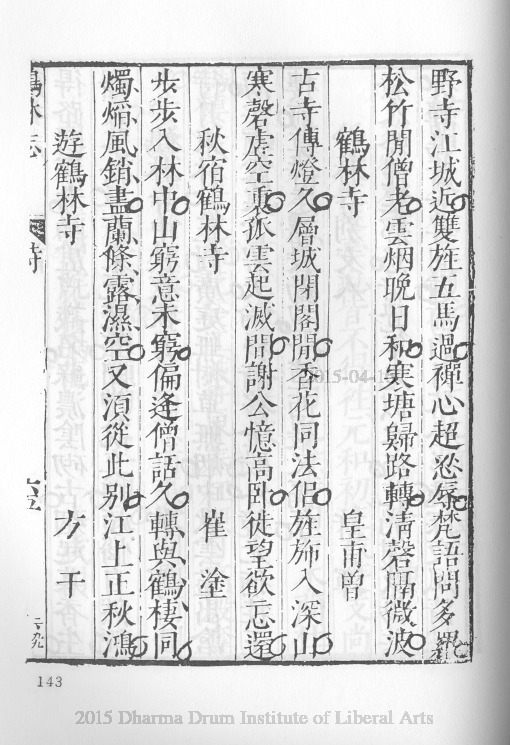 野寺江城近雙旌五馬過禪心超忍辱梵語問多羅
松竹閒僧老雲烟晚日和寒塘歸路轉清磬隔微波
鶴林寺 皇甫曾
古寺傳燈久層城閉閣閒香花同法侶旌斾入深山
寒磬虛空裏孤雲起滅間謝公憶高臥徙望欲忘還
秋宿鶴林寺 崔塗
步步入林中山窮意未窮偏逢僧話久轉與鶴棲同
燭焰風銷盡蘭條露濕空又須從此別江上正秋鴻
遊鶴林寺 方干
鶴林志 詩
143
2015-04-1
2015 Dharma Drum Institute of Liberal Arts